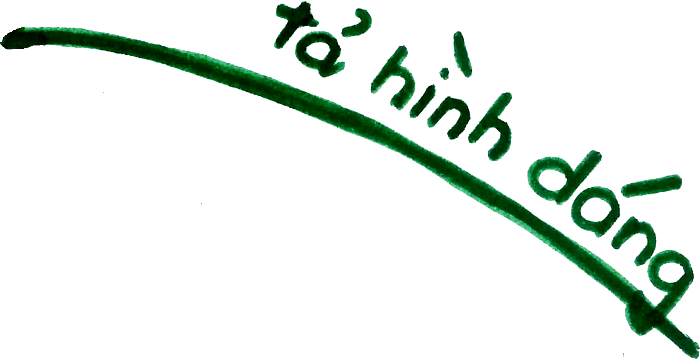 tả hình dáng